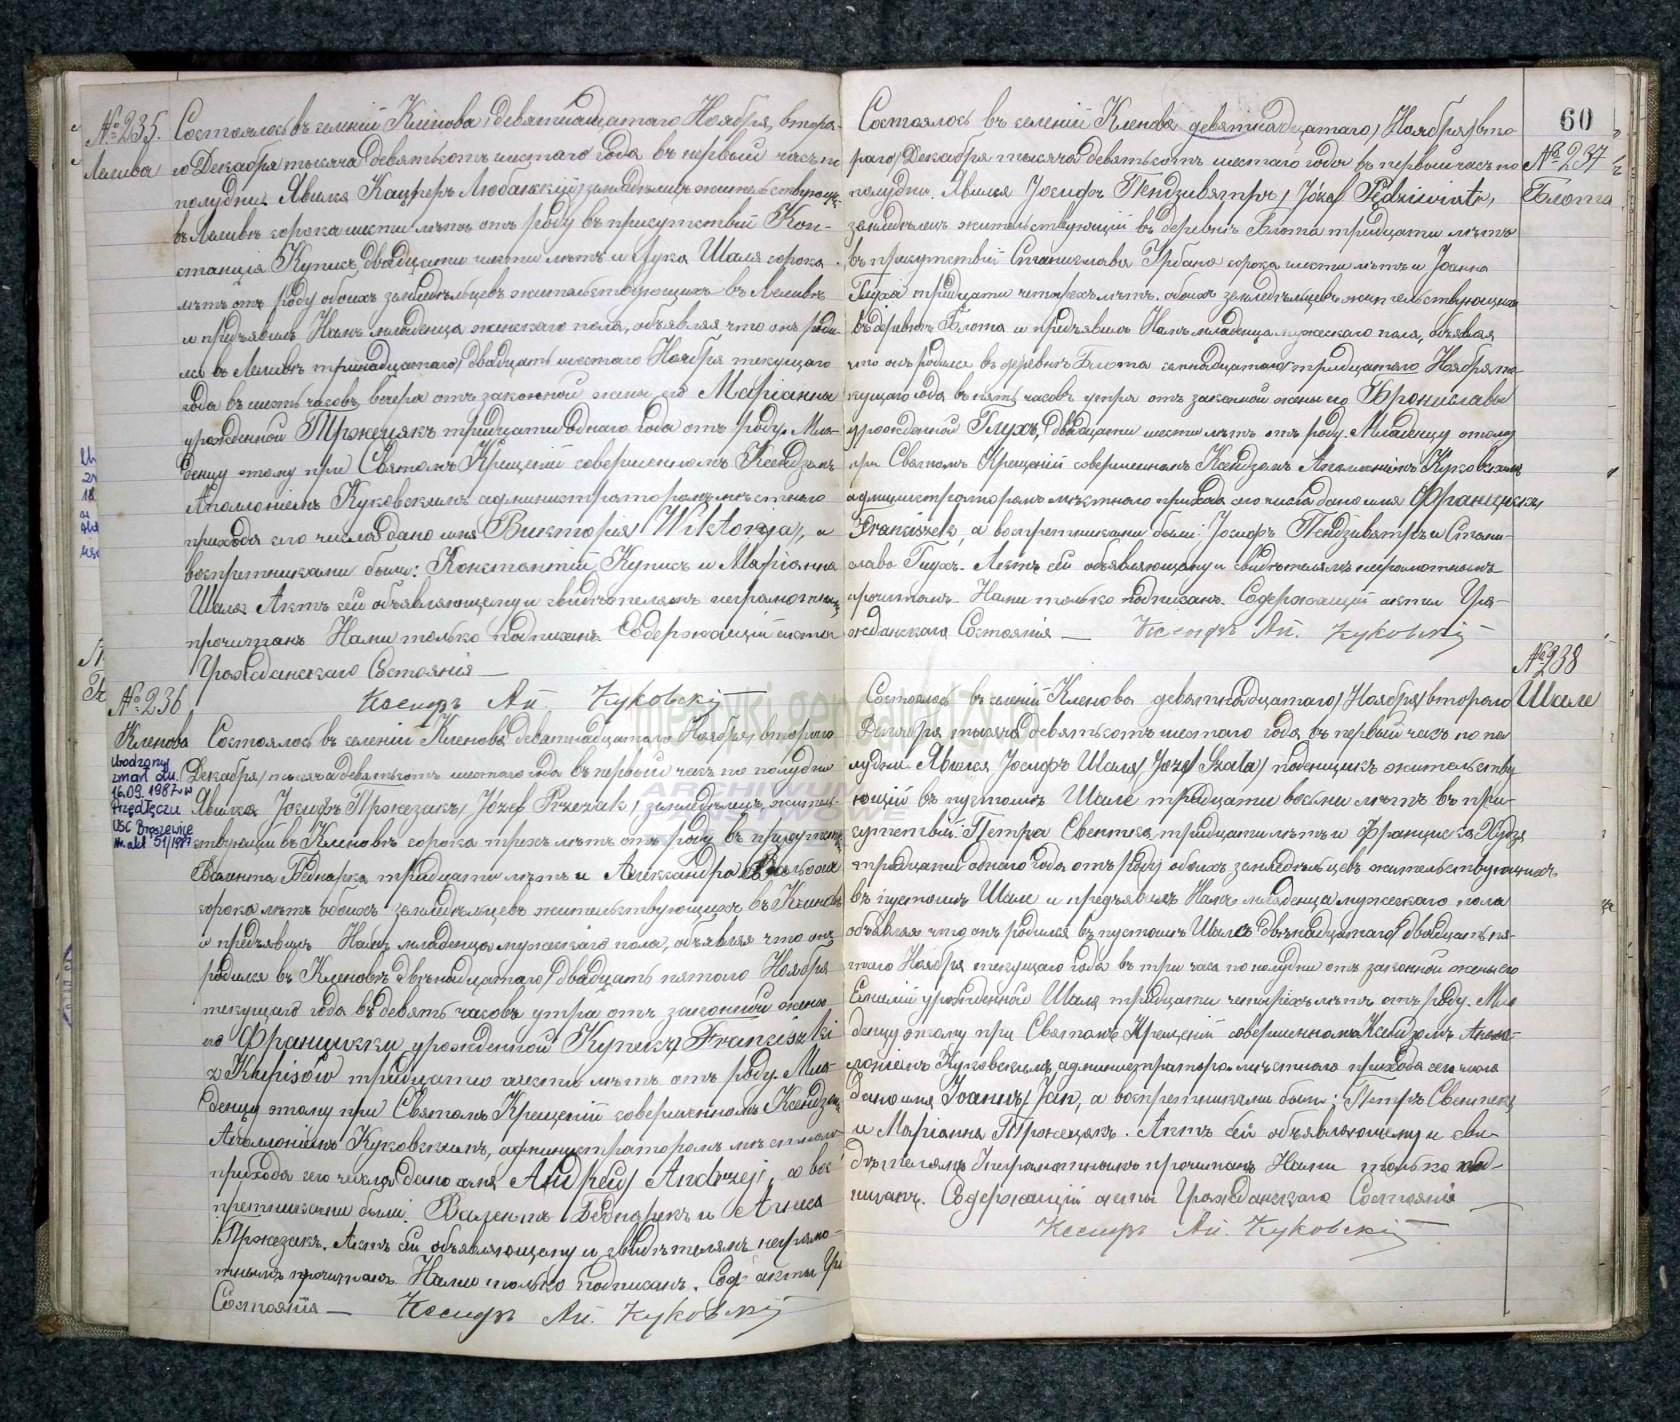 № 235.
Леливы
Состоялось въ селеніи Кленова, девятнадцатаго Ноября, второ-
го Декабря тысяча девятьсотъ шестаго года въ первый часъ по
полудни. Явился Кацперъ Любанскій, земледѣлецъ жительствующій
въ Леливѣ сорока шести лѣтъ отъ роду въ присутствіи Кон-
станція Куписъ, двадцати шести лѣтъ и Лука Шаля сорока
лѣтъ отъ роду обоихъ земледѣльцевъ жительствующихъ въ Леливѣ
и предъявилъ Намъ младенца женскаго пола, объявляя что она роди-
лась въ Леливѣ тринадцатаго/двадцать шестаго Ноября текущаго
года въ шесть часовъ вечера отъ законной жены его Маріанна
урожденной Тржецякъ тридцати одного года отъ роду. Мла-
денцу этому при Святомъ Крещеніи совершенномъ Ксендзомъ
Аполоніемъ Куковскимъ администраторомъ мѣстнаго
прихода сего числа дано имя Викторія/Wiktorja/, а
воспріемниками были: Константій Куписъ и Маріанна
Шаля. Актъ сей объявляющему и свидѣтелямъ неграмотнымъ
прочитанъ Нами только подписанъ. Содержащій акты
Гражданскаго Состоянія —
Ксендзъ Ап. Куковскій
№ 236
Кленова
Urodzony
zmarł dn.
16.09.1987 w
Przedłęczu
USC Brąszewice
Nr. akt 51/1987
Состоялось въ селеніи Кленова девятнадцатаго Ноября/втораго
Декабря/тысяча девятьсотъ шестаго года въ первый часъ по полудни
Явился Іосифъ Пржезакъ/Józef Przezak/земледѣлецъ житель-
ствующій въ Кленовѣ сорока трехъ лѣтъ отъ роду въ присутствіи
Валента Беднарка тридцати лѣтъ и Александра
сорока лѣтъ обоихъ земледѣльцевъ жительствующихъ въ Кленовѣ
и предъявилъ Намъ младенца мужескаго пола, объявляя что онъ
родился въ Кленовѣ двѣнадцатаго/двадцать пятого Ноября
текущаго года въ девять часовъ утра отъ законной жены
его Францишки урожденной Куписъ/Franciszki
z Kupisów тридцати шести лѣтъ отъ роду. Мла-
денцу этому при Святомъ Крещеніи совершенномъ Ксендзомъ
Аполлоніемъ Куковскимъ, администраторомъ мѣстнаго
прихода сего числа дано имя Андрей/Andrzej, а вос-
пріемниками были: Валентъ Беднарекъ и Агнеса
Пржезакъ. Актъ сей объявляющему и свидѣтелямъ неграмо-
тнымъ прочитанъ Нами только подписанъ. Сод. акты Гр.
Состоянія — Ксендзъ Ап. Куковскій
60
№ 237
Блота
Состоялось въ селеніи Кленова девятнадцатаго/Ноября/вто
раго/Декабря тысяча девятьсотъ шестаго года въ первый часъ по
полудни. Явился Іосифъ Пендзивятръ/Józef Pędziwiatr,
земледѣлецъ жительствующій въ деревнѣ Блота тридцати лѣтъ
въ присутствіи Станислава Урбана сорока шести лѣтъ и Іоанна
Глуха тридцати четырехъ лѣтъ обоихъ земледѣльцевъ жительствующихъ
въ деревнѣ Блота и предъявилъ Намъ младенца мужескаго пола, объявляя
что онъ родился въ деревнѣ Блота семнадцатаго/тридцатаго Ноября те-
кущаго года въ пять часовъ утра отъ законной жены его Брониславы
урожденной Глухъ, двадцати шести лѣтъ отъ роду. Младенцу этому
при Святомъ Крещеніи совершенномъ Ксендзомъ Аполоніемъ Куковскимъ
администраторомъ мѣстнаго прихода сего числа дано имя Францискъ
Franciszek, а воспріемниками были: Іосифъ Пендзивятръ и Стани-
слава Глухъ. Актъ сей объявляющему и свидѣтелямъ неграмотнымъ
прочитанъ. Нами только подписанъ. Содержащій акты Гра-
жданскаго Состоянія — Ксендзъ Ап. Куковскій
№ 238
Шале
Состоялось въ селеніи Кленова девятнадцатаго/Ноября/втораго
Декабря тысяча девятьсотъ шестаго года въ первый часъ по по
лудни. Явился Іосифъ Шаля/Józef Szala/поденщикъ жительству
ющій въ пустошѣ Шале тридцати восьми лѣтъ въ при-
сутствіи: Петра Свентека, тридцати лѣтъ и Франциска
тридцати одного года отъ роду обоихъ земледѣльцевъ жительствующихъ
въ пустошѣ Шале и предъявилъ Намъ младенца мужескаго пола
объявляя что онъ родился въ пустошѣ Шале двѣнадцатаго/двадцать пя-
таго Ноября текущаго года въ три часа по полудни отъ законной жены его
Емиліи урожденной Шаля тридцати четырехъ лѣтъ отъ роду. Мла
денцу этому при Святомъ Крещеніи совершенномъ Ксендзомъ Апол-
лоніемъ Куковскимъ, администраторомъ мѣстнаго прихода сего числа
дано имя Іоаннъ/Jan, а воспріемниками были: Петръ Свентекъ
и Маріанна Тржецякъ. Актъ сей объявляющему и сви-
дѣтелямъ неграмотнымъ прочитанъ Нами только под-
писанъ. Содержащій акты Гражданскаго Состоянія
Ксендзъ Ап. Куковскій
metryki.genealodzy.pl
ARCHIWUM
PAŃSTWOWE